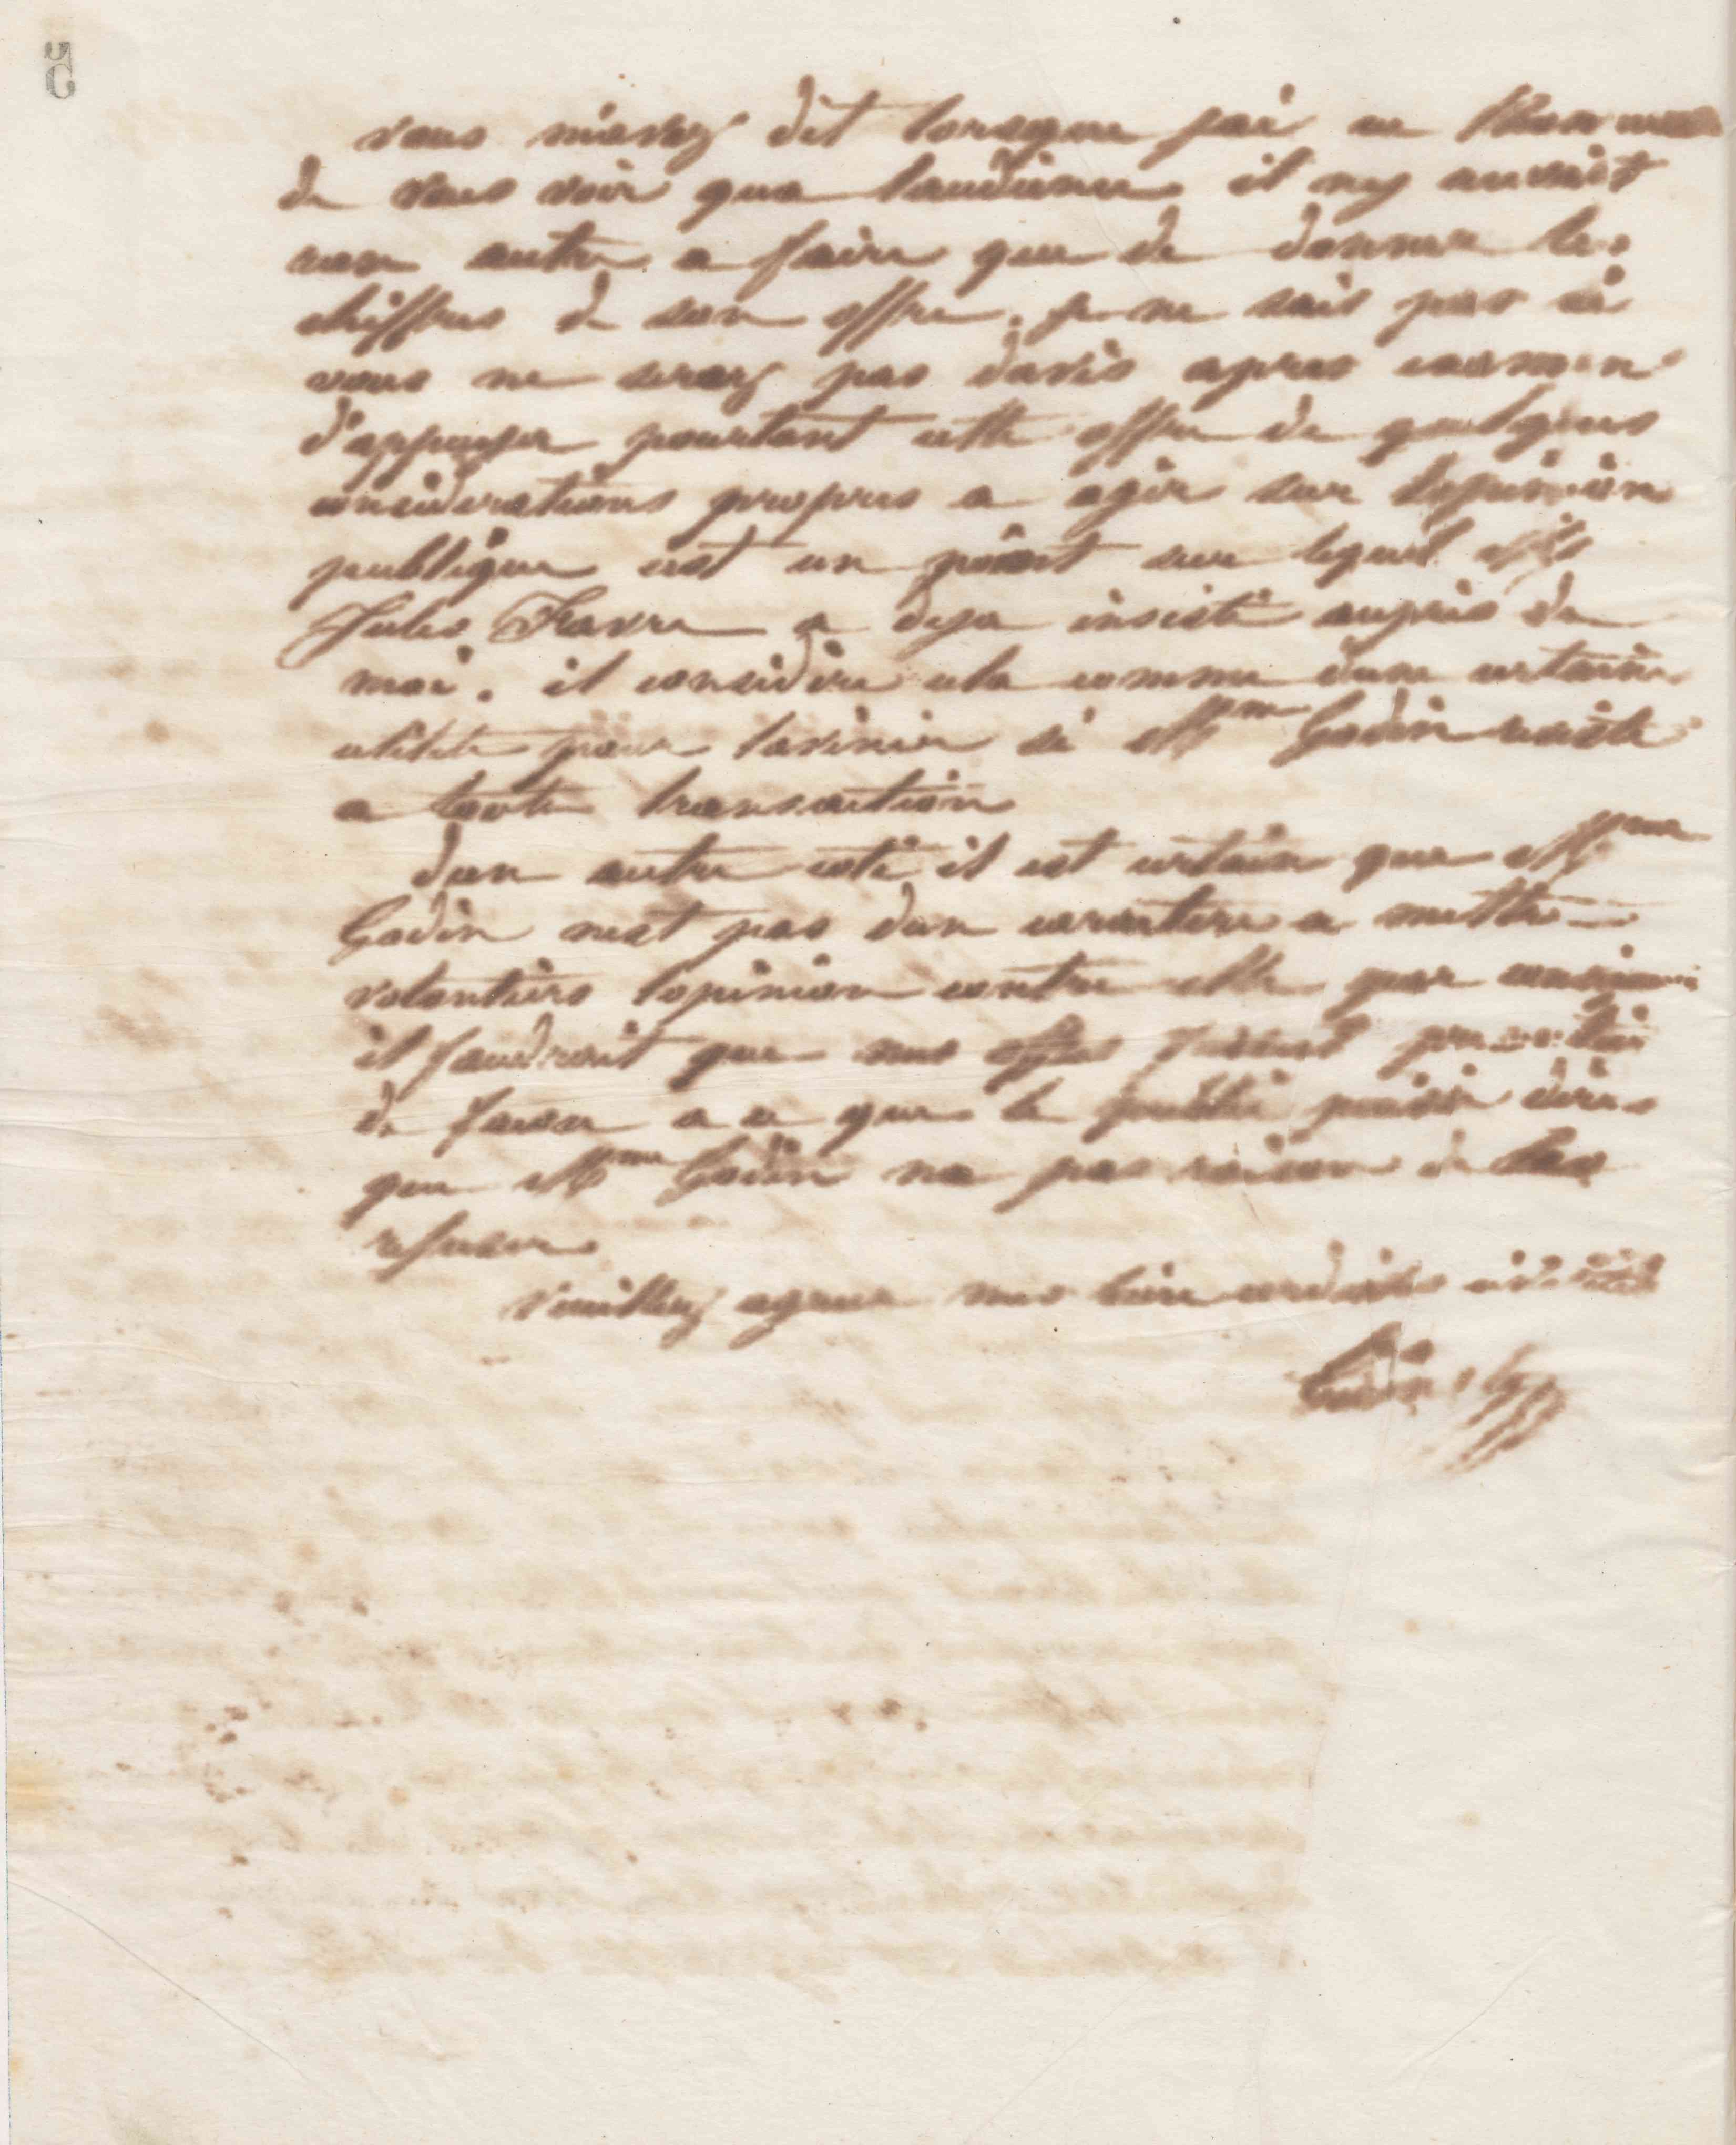 5
vous m'avez dit lorsque j'ai eu l'honneur
de vous voir qua laudience il ny aurait
rien autre a faire que de donner les
chiffres de son offre. je ne sais pas si
vous ne serez pas davis apres examen
d'appuyer pourtant cette offre de quelques
considerations propres a agir sur lopinion
publique cest un point sur lequel Mr
Jules Favre a deja insisté auprès de
moi. il considère cela comme dune certaine
utilité pour lavenir si Mme Godin resiste
a toute transaction
dun autre coté il est certain que Mme
Godin nest pas dun caractere a mettre
volontiers lopinion contre elle par
il faudrait que mes offres fussent
de facon a ce que le public puisse dire
que Mme Godin na pas raison de les
refuser
Veuillez agreer mes bien cordiales civilités
Godin